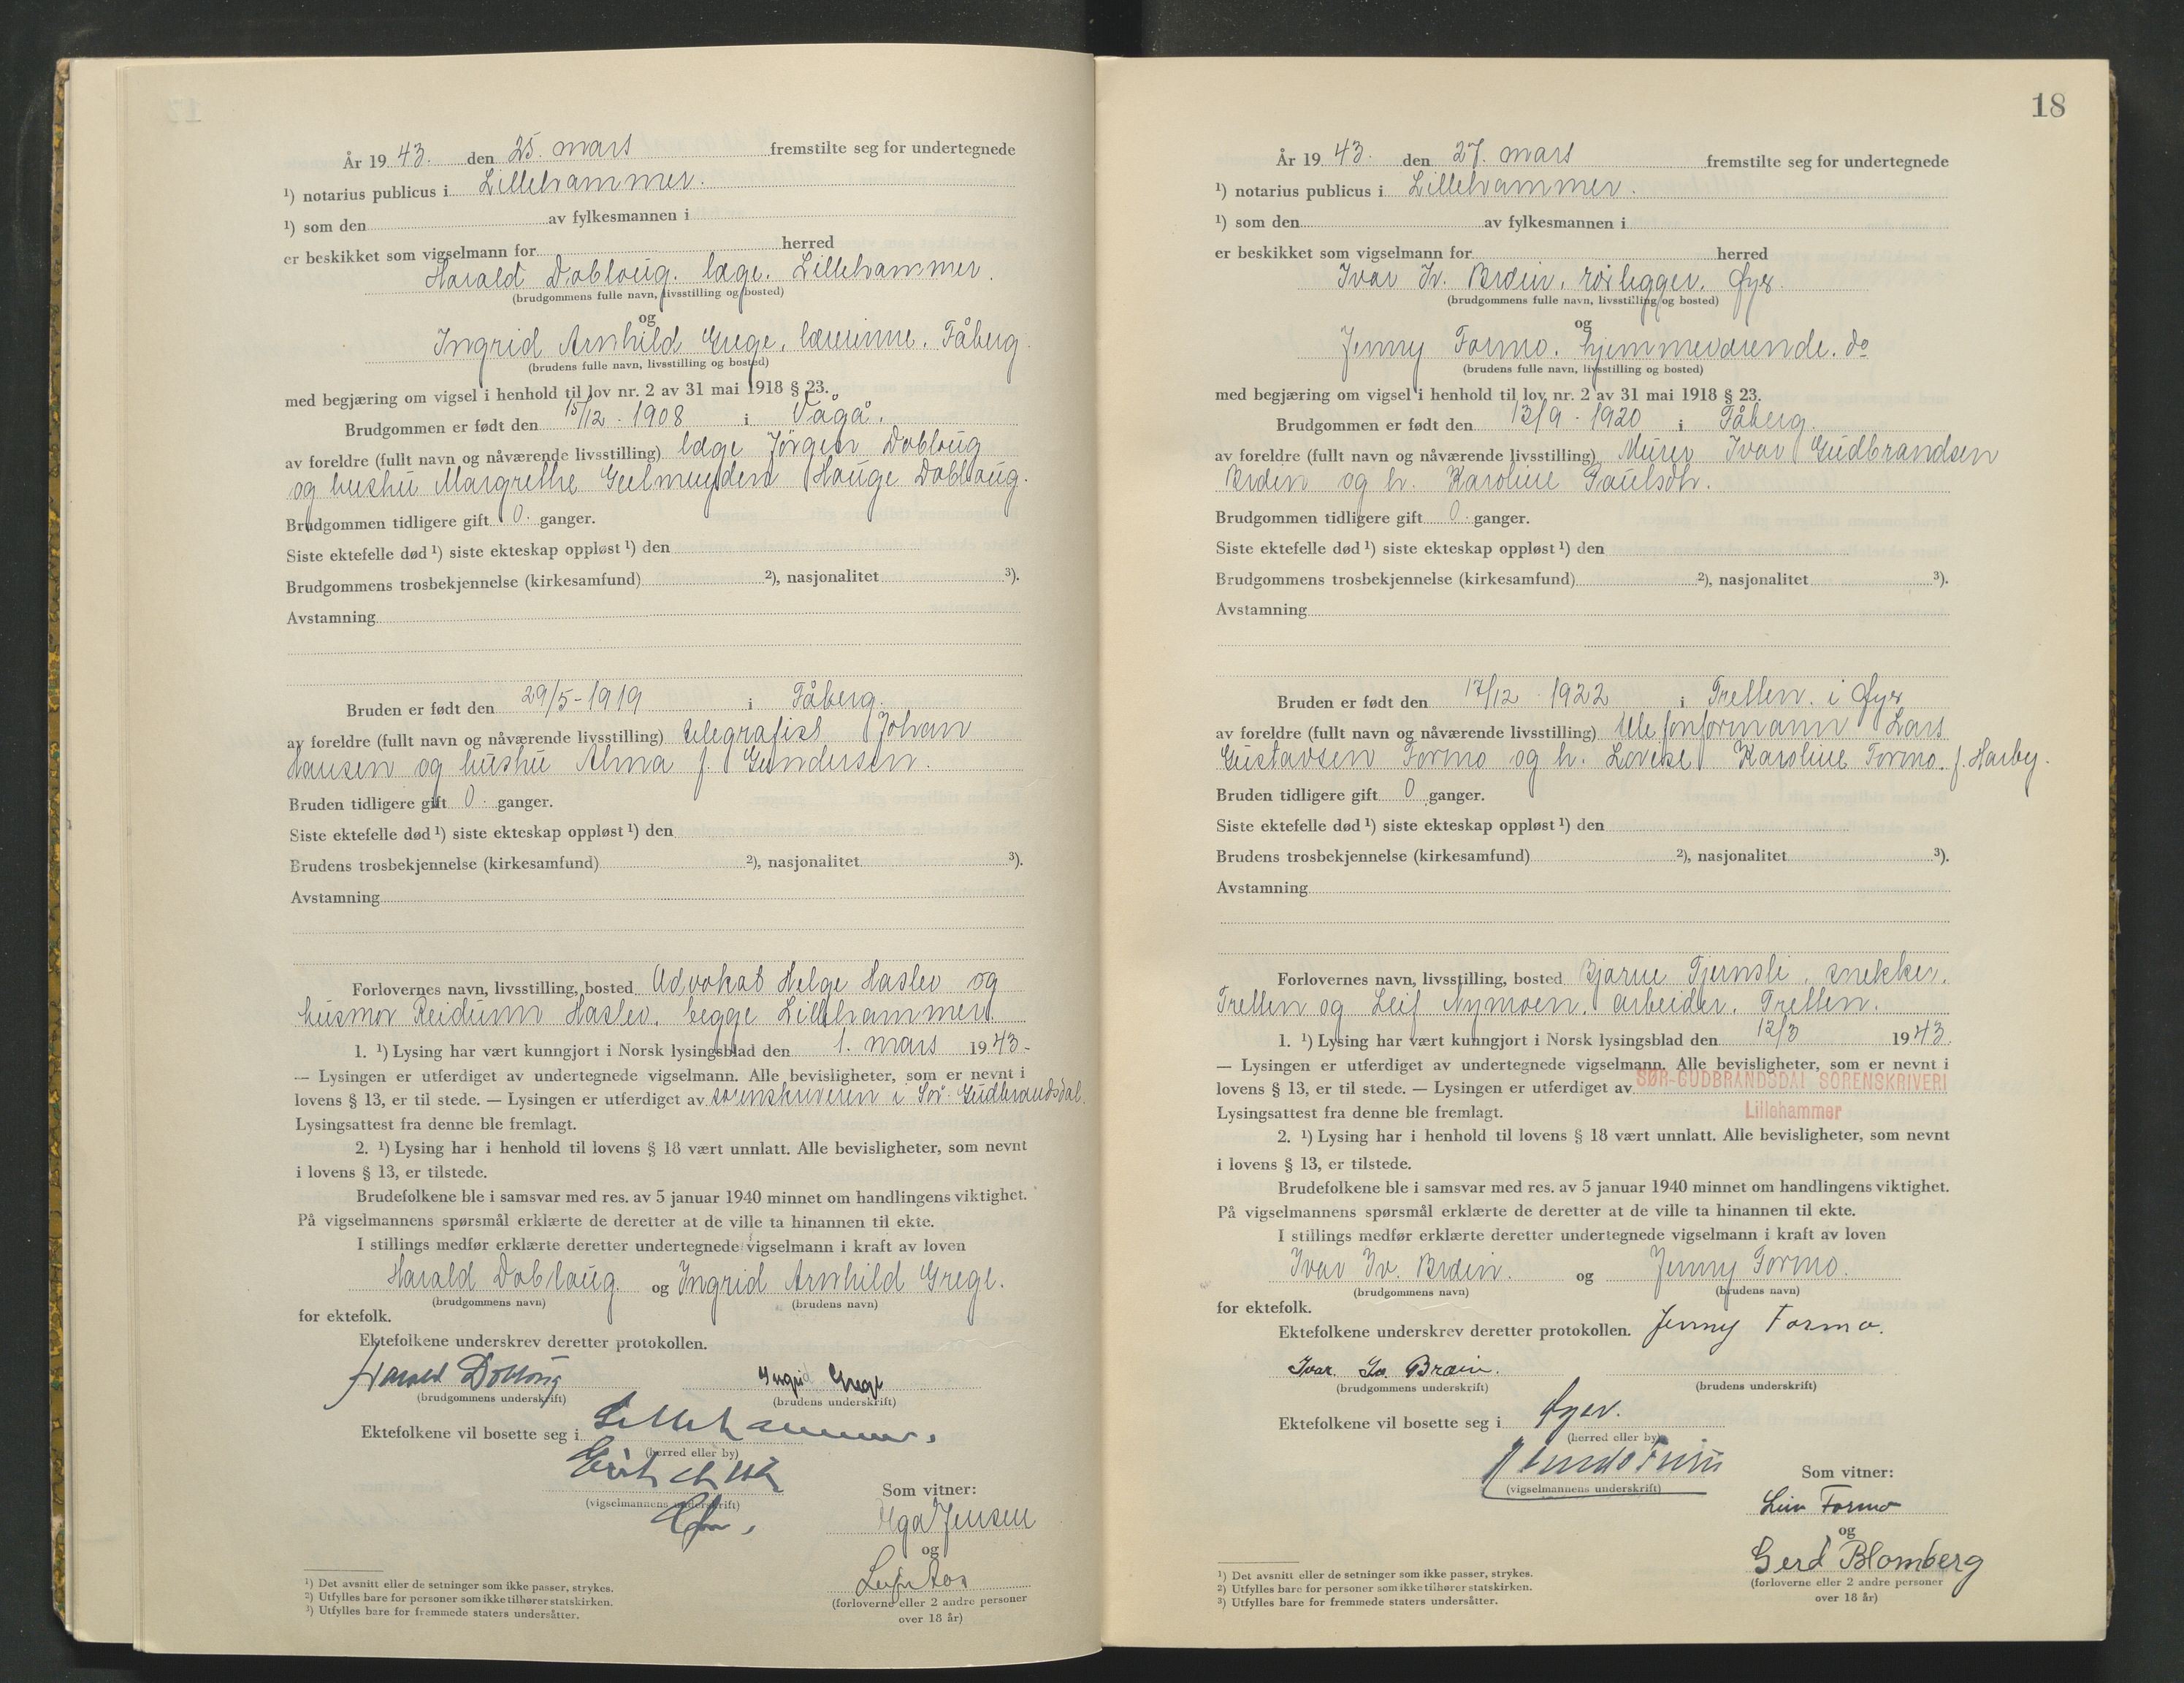 År 1943. den 25. mars fremstilte seg for undertegnede
¹) notarius publicus i Lillehammer.
¹) som den av fylkesmannen i
er beskikket som vigselmann for herred
Harald Dobloug. læge. Lillehammer.
(brudgommens fulle navn, livsstilling og bosted)
og
Ingrid Arnhild Grege, lærerinne. Fåberg.
(brudens fulle navn, livsstilling og bosted)
med begjæring om vigsel i henhold til lov nr. 2 av 31 mai 1918 § 23.
Brudgommen er født den 15/12 - 1908 i Vågå.
av foreldre (fullt navn og nåværende livsstilling) læge Jörgen Dobloug
og hushu Margrethe Geelmuyden Hauge Dobloug.
Brudgommen tidligere gift 0. ganger.
Siste ektefelle død ¹) siste ekteskap oppløst ¹) den
Brudgommens trosbekjennelse (kirkesamfund) ²), nasjonalitet ³).
Avstamning
Bruden er født den 29/5 - 1919 i Fåberg.
av foreldre (fullt navn og nåværende livsstilling) telegrafist Johan
Hansen og hushu Alma f. Gundersen.
Bruden tidligere gift 0. ganger.
Siste ektefelle død ¹) siste ekteskap oppløst ¹) den
Brudens trosbekjennelse (kirkesamfund) ²), nasjonalitet ³).
Avstamning
Forlovernes navn, livsstilling, bosted Advokat Helge Haslev og
husmor Reidunn Haslev. begge Lillehammer.
1. ¹) Lysing har vært kunngjort i Norsk lysingsblad den 1. mars 1943-
— Lysingen er utferdiget av undertegnede vigselmann. Alle bevisligheter, som er nevnt i
lovens § 13, er til stede. — Lysingen er utferdiget av sorenskriveren i Sör-Gudbrandsdal.
Lysingsattest fra denne ble fremlagt.
2. ¹) Lysing har i henhold til lovens § 18 vært unnlatt. Alle bevisligheter, som nevnt
i lovens § 13, er tilstede.
Brudefolkene ble i samsvar med res. av 5 januar 1940 minnet om handlingens viktighet.
På vigselmannens spørsmål erklærte de deretter at de ville ta hinannen til ekte.
I stillings medfør erklærte deretter undertegnede vigselmann i kraft av loven
Harald Doblaug. og Ingrid Arnhild Grege.
(brudgommens navn) (brudens navn)
for ektefolk.
Ektefolkene underskrev deretter protokollen.
Harald Dobloug Ingrid Grege
(brudgommens underskrift) (brudens underskrift)
Ektefolkene vil bosette seg i Lillehammer.
(herred eller by)
(vigselmannens underskrift)
Som vitner:
Jensen
og
Leif Aos
(forloverne eller 2 andre personer
over 18 år)
¹) Det avsnitt eller de setninger som ikke passer, strykes.
²) Utfylles bare for personer som ikke tilhører statskirken.
³) Utfylles bare for fremmede staters undersåtter.
18
År 1943. den 27. mars fremstilte seg for undertegnede
¹) notarius publicus i Lillehammer.
¹) som den av fylkesmannen i
er beskikket som vigselmann for herred
Ivar Iv. Bræin, rörlegger. Øyer.
(brudgommens fulle navn, livsstilling og bosted)
og
Jenny Formo. hjemmeværende. do
(brudens fulle navn, livsstilling og bosted)
med begjæring om vigsel i henhold til lov nr. 2 av 31 mai 1918 § 23.
Brudgommen er født den 13/9 - 1920 i Fåberg.
av foreldre (fullt navn og nåværende livsstilling) Murer Ivar Gudbrandsen
Bræin og h. Karoline Paulsdtr.
Brudgommen tidligere gift 0. ganger.
Siste ektefelle død ¹) siste ekteskap oppløst ¹) den
Brudgommens trosbekjennelse (kirkesamfund) ²), nasjonalitet ³).
Avstamning
Bruden er født den 17/12 - 1922 i Tretten. i Øyer
av foreldre (fullt navn og nåværende livsstilling) telefonformann Lars
Gustavsen Formo og h. Lovise Karoline Formo. f. Harby.
Bruden tidligere gift 0 ganger.
Siste ektefelle død ¹) siste ekteskap oppløst ¹) den
Brudens trosbekjennelse (kirkesamfund) ²), nasjonalitet ³).
Avstamning
Forlovernes navn, livsstilling, bosted Bjarne Tjernsli, snekker.
Tretten og Leif Nymoen. arbeider. Tretten.
1. ¹) Lysing har vært kunngjort i Norsk lysingsblad den 12/3 1943.
— Lysingen er utferdiget av undertegnede vigselmann. Alle bevisligheter, som er nevnt i
lovens § 13, er til stede. — Lysingen er utferdiget av SØR-GUDBRANDSDAL SORENSKRIVERI
Lysingsattest fra denne ble fremlagt. Lillehammer
2. ¹) Lysing har i henhold til lovens § 18 vært unnlatt. Alle bevisligheter, som nevnt
i lovens § 13, er tilstede.
Brudefolkene ble i samsvar med res. av 5 januar 1940 minnet om handlingens viktighet.
På vigselmannens spørsmål erklærte de deretter at de ville ta hinannen til ekte.
I stillings medfør erklærte deretter undertegnede vigselmann i kraft av loven
Ivar Iv. Bræin. og Jenny Formo.
(brudgommens navn) (brudens navn)
for ektefolk.
Ektefolkene underskrev deretter protokollen. Jenny Formo.
Ivar. Iv. Bræin.
(brudgommens underskrift) (brudens underskrift)
Ektefolkene vil bosette seg i Øyer.
(herred eller by)
(vigselmannens underskrift)
Som vitner:
Formo
og
Gerd Blomberg
(forloverne eller 2 andre personer
over 18 år)
¹) Det avsnitt eller de setninger som ikke passer, strykes.
²) Utfylles bare for personer som ikke tilhører statskirken.
³) Utfylles bare for fremmede staters undersåtter.